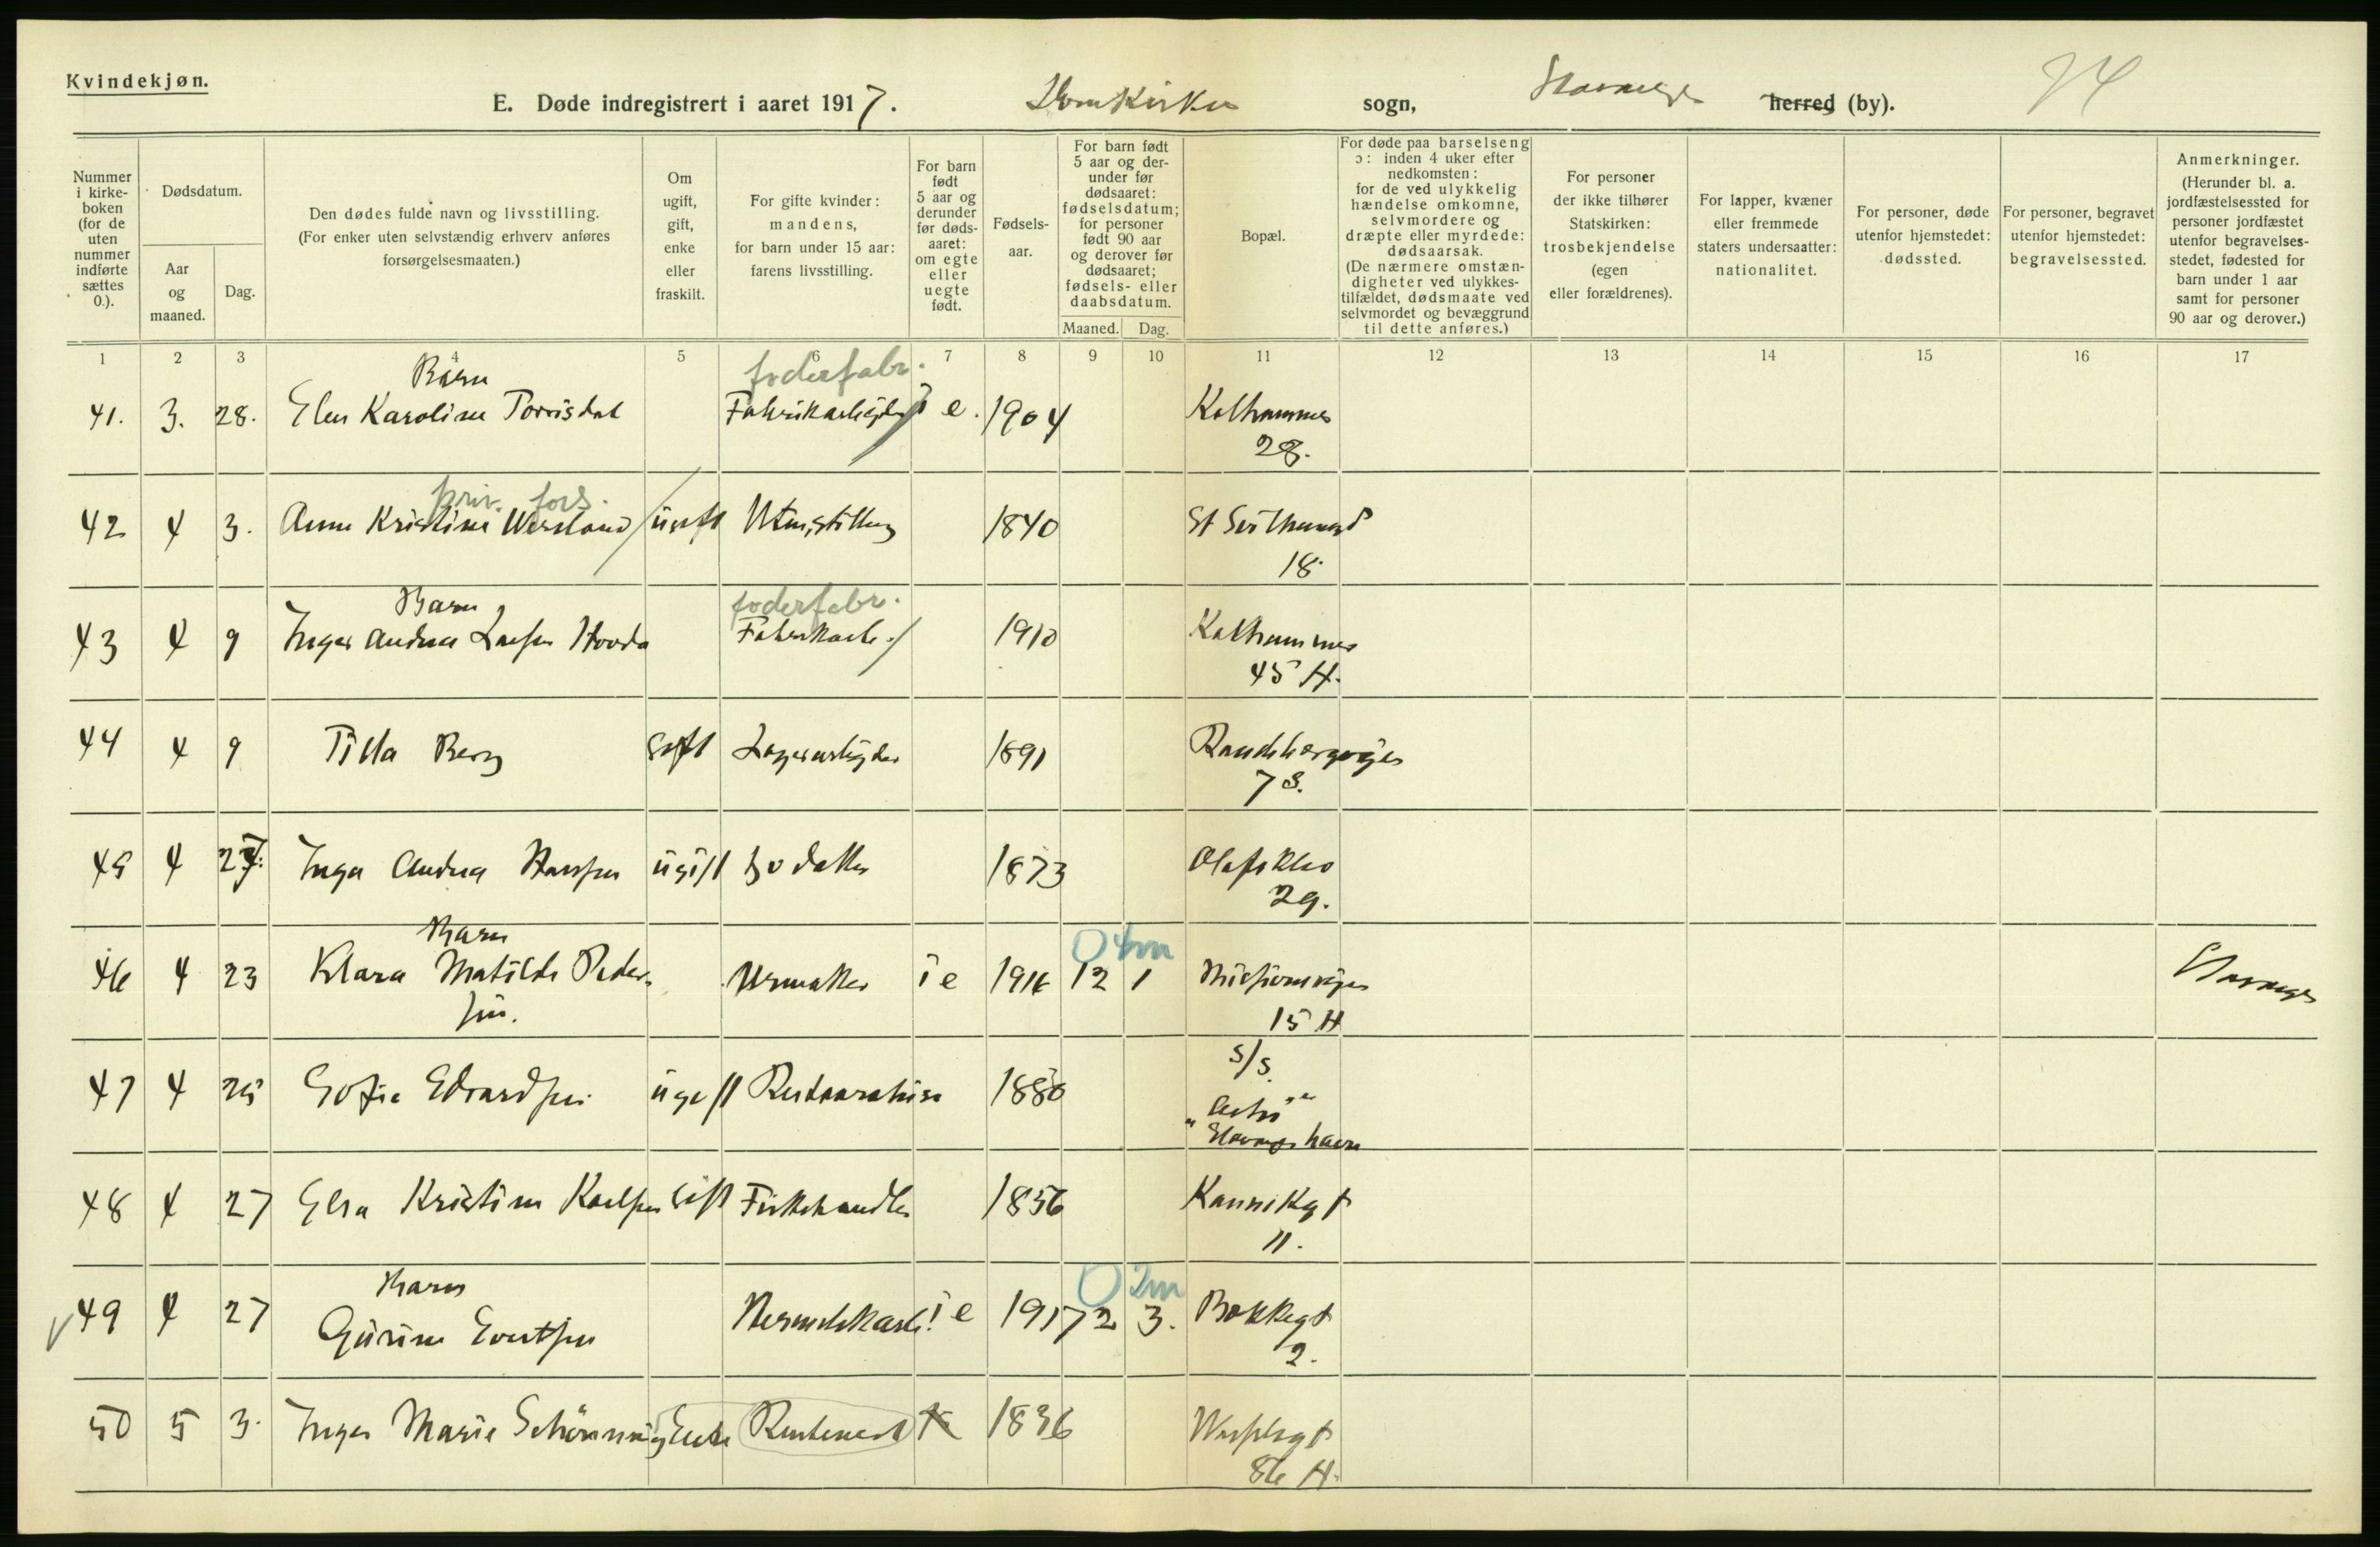 Kvindekjøn.
E. Døde indregistrert i aaret 1917. Domkirken sogn, Stavanger herred (by). 24
Nummer i kirke-boken (for de uten nummer indførte sættes 0.).
Dødsdatum.
Aar og maaned.
Dag.
Den dødes fulde navn og livsstilling.
(For enker uten selvstændig erhverv anføres forsørgelsesmaaten.)
Om ugift, gift, enke eller fraskilt.
For gifte kvinder: mandens, for barn under 15 aar: farens livsstilling.
For barn født 5 aar og derunder før døds-aaret: om egte eller uegte født.
Fødsels-aar.
For barn født 5 aar og der-under før dødsaaret: fødselsdatum; for personer født 90 aar og derover før dødsaaret; fødsels- eller daabsdatum.
Maaned. Dag.
Bopæl.
For døde paa barselseng ɔ: inden 4 uker efter nedkomsten: for de ved ulykkelig hændelse omkomne, selvmordere og dræpte eller myrdede: dødsaarsak.
(De nærmere omstæn-digheter ved ulykkes-tilfældet, dødsmaate ved selvmordet og bevæggrund til dette anføres.)
For personer der ikke tilhører Statskirken: trosbekjendelse (egen eller forældrenes).
For lapper, kvæner eller fremmede staters undersaatter: nationalitet.
For personer, døde utenfor hjemstedet: dødssted.
For personer, begravet utenfor hjemstedet: begravelsessted.
Anmerkninger.
(Herunder bl. a. jordfæstelsessted for personer jordfæstet utenfor begravelses-stedet, fødested for barn under 1 aar samt for personer 90 aar og derover.)
1 2 3 4 5 6 7 8 9 10 11 12 13 14 15 16 17
Barn foderfabr.
41. 3. 28. Elen Karoline Torrisdal Fabrikarbeider i e. 1904 Kalhammer
28.
priv. fors.
42 4 3. Anne Kristine ugift 1840 St Svithunsgt
18.
Barn foderfabr.
43 4 9 Inger Andrea Hovda Fabrikarb. 1910 Kalhammer
45 H.
44 4 9 Tilla Berg Gift Lagerarbeider 1891 Randabergveien
7 S.
45 4 27. Inga Andrea Hansen ugift 1873 Olafsklev
29.
Barn 0 4m
46 4 23 Klara Matilde Peder- Urmaker i e 1916 12 1 Missionsveien Stavanger
sen. 15 H
S/S.
47 4 25 Sofie Edvardsen ugift 1880
Stavanger havn
48 4 27 Elsa Kristine Karlsen Gift Fiskehandler 1856 Kannikgt
11.
Barn 0 2m
49 4 27 Gurine Evertsen Hermetikarb. i e 1917 2 3. Bakkegt
2.
50 5 3. Inger Marie Schönning Enke 1836
86 H.